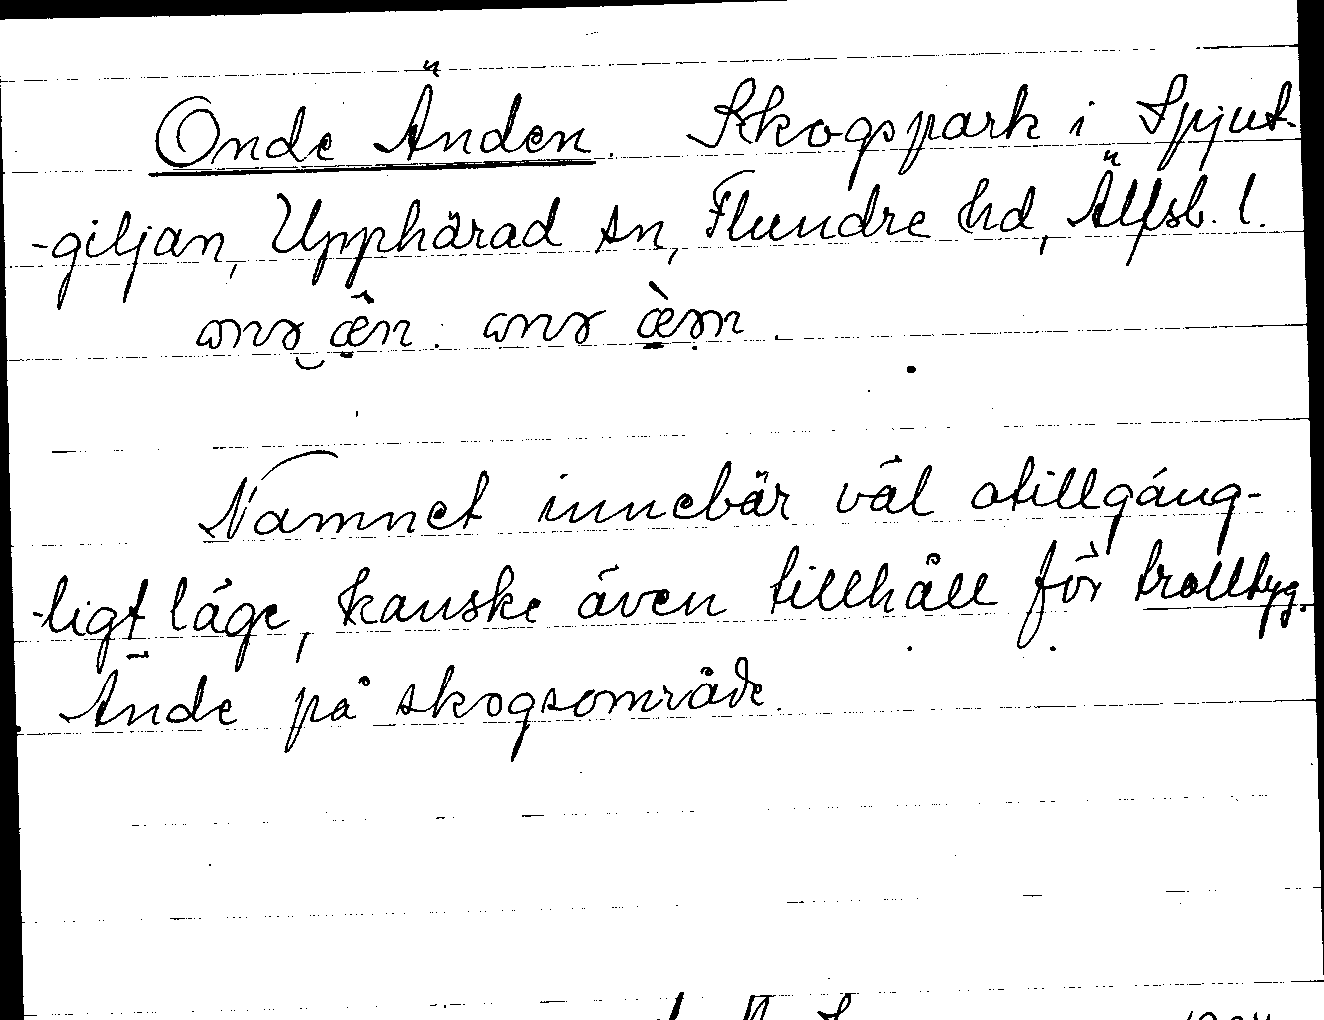 Onde Änden. Skogspark i Spjut-
-giljan, Upphärad sn, Flundre hd, Älfsb. l.
Namnet innebär väl otillgäng-
-ligt läge, kanske även tillhåll för trolltyg.
Ände på skogsområde.